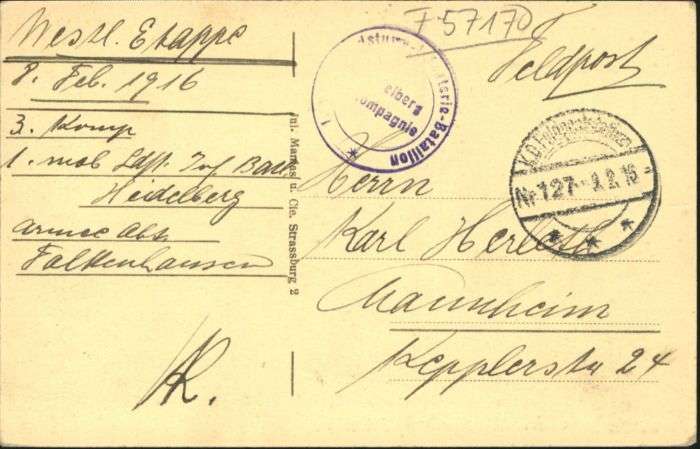 Westl. Etappe
8. Feb. 1916
3. Komp
1. mob Ldst. Inf Batl.
Heidelberg
Armee Abt.
Falkenhausen
Jul. Manias u. Cie. Strassburg 2
F 57170
Feldpost
dsturm-I terie-Bataillon
elberg
ompagnie
I
*
Herrn
Karl
Mannheim
Kepplerstr 24
Nr 127 - 9.2.16
* * *